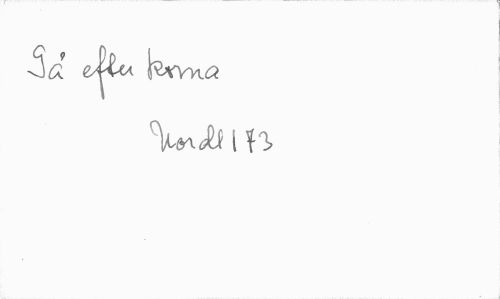 Gå efter korna
Nordl 173